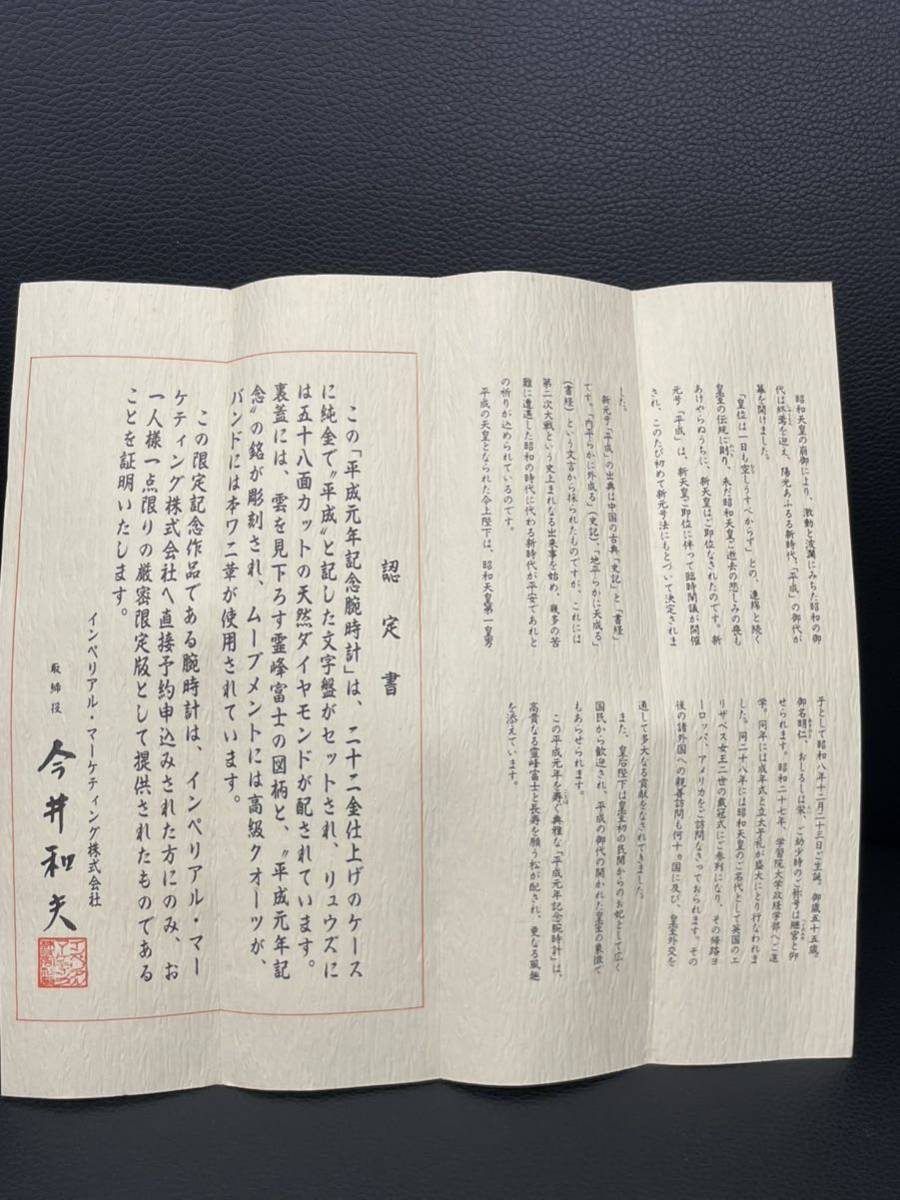 昭和天皇の崩御により、激動と波瀾にみちた昭和の御
代は終焉を迎え、陽光あふるる新時代、「平成」の御代が
幕を開けました。
「皇位は一日も空しうすべからず」との、連綿と続く
皇室の伝統に則り、未だ昭和天皇ご逝去の悲しみの喪も
あけやらぬうちに、新天皇はご即位なされたのです。新
元号「平成」は、新天皇ご即位に伴って臨時閣議が開催
され、このたび初めて新元号法にもとづいて決定されま
した。
新元号「平成」の出典は中国の古典「史記」と「書経」
です。「内平らかに外成る」(史記)、「地平らかに天成る」
(書経)という文言から採られたものですが、これには
第二次大戦という史上まれなる出来事を始め、幾多の苦
難に遭遇した昭和の時代に代わる新時代が平安であれと
の祈りが込められているのです。
平成の天皇となられた今上陛下は、昭和天皇第一皇男
子として昭和八年十二月二十三日ご生誕。御歳五十五歳。
御名明仁、おしるしは栄、ご幼少時のご称号は継宮と仰
せられます。昭和二十七年、学習院大学政経学部へご進
学。同年には成年式と立太子礼が盛大にとり行なわれま
した。同二十八年には昭和天皇のご名代として英国のエ
リザベス女王二世の戴冠式にご参列になり、その帰路ヨ
ーロッパ、アメリカをご訪問なさっておられます。その
後の諸外国への親善訪問も何十ヵ国に及び、皇室外交を
通して多大なる貢献をなされてきました。
また、皇后陛下は皇室初の民間からのお妃として広く
国民から歓迎され、平成の御代の開かれた皇室の象徴で
もあらせられます。
この平成元年を寿ぐ典雅な「平成元年記念腕時計」は、
高貴なる霊峰富士と長寿を願う松が配され、更なる風趣
を添えています。
認定書
この「平成元年記念腕時計」は、二十二金仕上げのケース
に純金で〝平成〟と記した文字盤がセットされ、リュウズに
は五十八面カットの天然ダイヤモンドが配されています。
裏蓋には、雲を見下ろす霊峰富士の図柄と、〝平成元年記
念〟の銘が彫刻され、ムーブメントには高級クオーツが、
バンドには本ワニ革が使用されています。
この限定記念作品である腕時計は、インペリアル・マー
ケティング株式会社へ直接予約申込みされた方にのみ、お
一人様一点限りの厳密限定版として提供されたものである
ことを証明いたします。
インペリアル・マーケティング株式会社
取締役 今井和夫